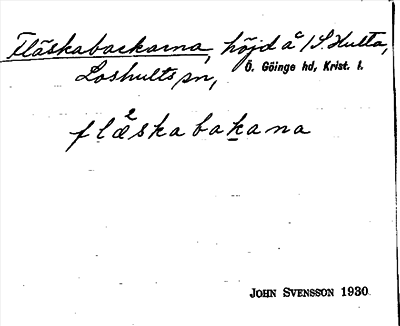 Fläskabackarna, höjd å 1/S. Hulta,
Loshults sn, Ö. Göinge hd, Krist. l.
flæ²skabakana
JOHN SVENSSON 1930.